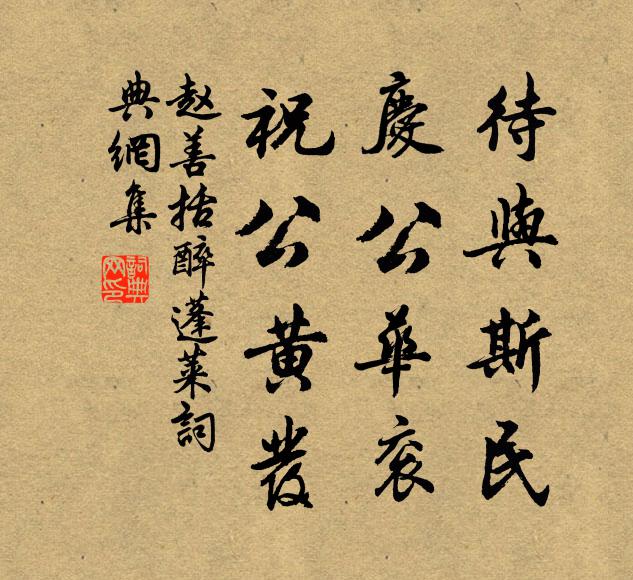 待與斯民
慶公華衮
祝公黄發
赵善括醉蓬萊詞
典網集
詞典
网印